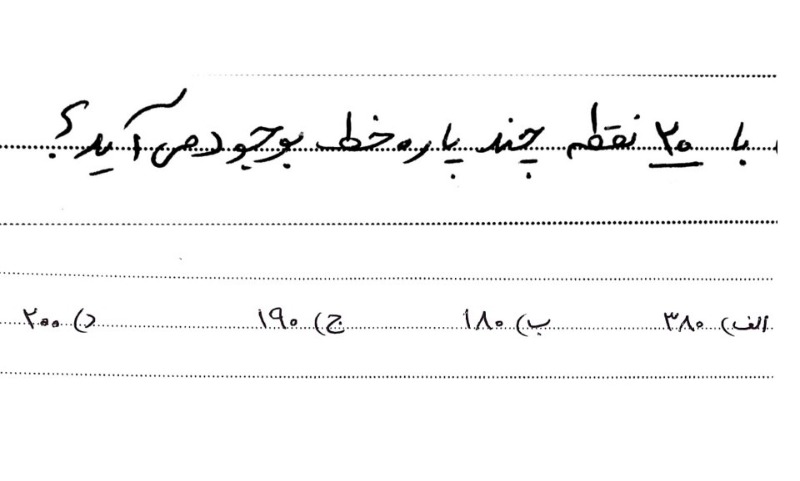 با ۲۰ نقطه چند پاره خط بوجود می آید؟
الف) ۳۸۰ ب) ۱۸۰ ج) ۱۹۰ د) ۲۰۰